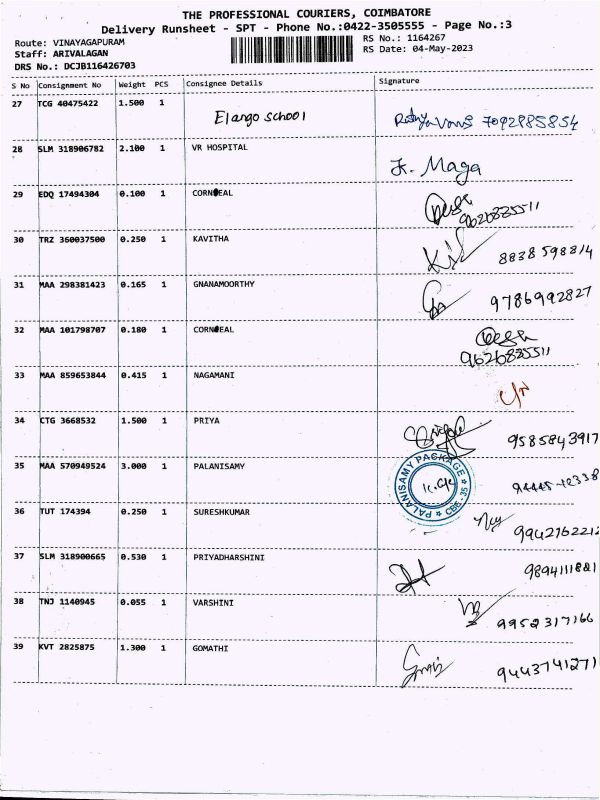 THE PROFESSIONAL COURIERS, COIMBATORE
Delivery Runsheet - SPT - Phone No.:0422-3505555 - Page No.:3
Route: VINAYAGAPURAM
RS No.: 1164267
Staff: ARIVALAGAN
RS Date: 04-May-2023
DRS No.: DCJB116426703
S No Consignment No Weight PCS Consignee Details Signature
27 TCG 40475422 1.500 1 Elango school 7092885854
28 SLM 318906782 2.100 1 VR HOSPITAL K. Maga
29 EDQ 17494304 0.100 1 9626835511
30 TRZ 360037500 0.250 1 KAVITHA 8838598814
31 MAA 298381423 0.165 1 GNANAMOORTHY 9786992827
32 MAA 101798707 0.180 1 9626835511
33 MAA 859653844 0.415 1 NAGAMANI
34 CTG 3668532 1.500 1 PRIYA 9585843917
35 MAA 570949524 3.000 1 PALANISAMY PALANISAMY PACKAGE CBE-35
36 TUT 174394 0.250 1 SURESHKUMAR 9942762212
37 SLM 318900665 0.530 1 PRIYADHARSHINI 9894111881
38 TNJ 1140945 0.055 1 VARSHINI 9952317166
39 KVT 2825875 1.300 1 GOMATHI 9443741271